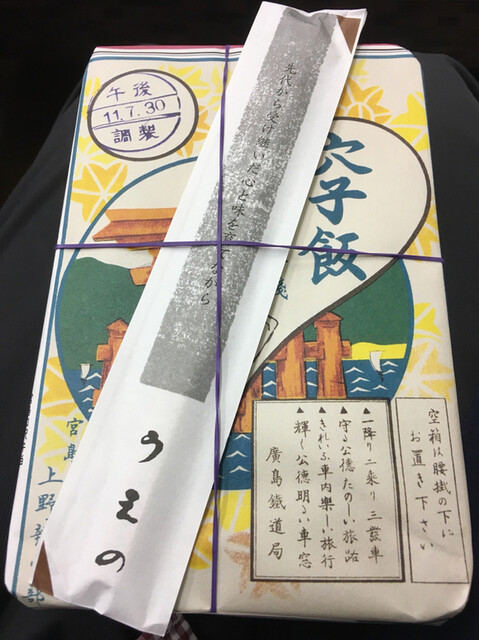 午後
11.7.30
調製
穴子飯
先代から受け継いだ心と味を育てながら
うえの
空箱は腰掛の下に
お置き下さい
▲一降り二乗り三發車
▲守る公徳たのしい旅路
▲きれいな車内樂しい旅行
▲輝く公徳明るい車窓
廣島鐵道局
宮島
上野
部